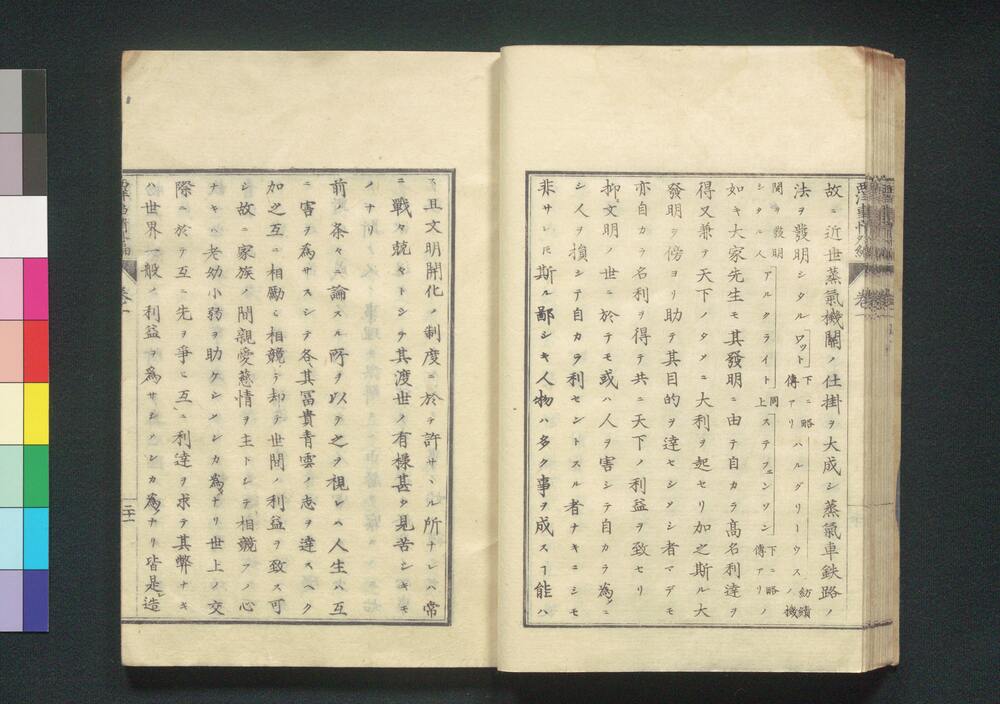 故ニ近世蒸氣機關ノ仕掛ヲ大成シ蒸氣車鉄路ノ
法ヲ發明シタルワット下ニ略傳アリハルグリーウス紡績ノ機
関ヲ發明シタル人アルクライト同上ステフェンソン下ニ略傳アリノ
如キ大家先生モ其發明ニ由テ自カラ高名利達ヲ
得又兼テ天下ノタメニ大利ヲ起セリ加之斯ル大
發明ヲ傍ヨリ助テ其目的ヲ達セシメシ者マデモ
亦自カラ名利ヲ得テ共ニ天下ノ利益ヲ致セリ
抑文明ノ世ニ於テモ或ハ人ヲ害シテ自カラ為ニ
シ人ヲ損シテ自カラ利セントスル者ナキニシモ
非サレ𪜈斯ル鄙シキ人物ハ多ク事ヲ成スヿ能ハ
ス且文明開化ノ制度ニ於テ許サヽル所ナレハ常
ニ戰々兢々トシテ其渡世ノ有様甚タ見苦シキモ
ノナリ
前ノ条々ニ論スル所ヲ以テ之ヲ視レハ人生ハ互
ニ害ヲ為サスシテ各其冨貴青雲ノ志ヲ達スヘク
加之互ニ相勵ミ相競テ却テ世間ノ利益ヲ致ス可
シ故ニ家族ノ間親愛慈情ヲ主トシテ相競フノ心
ナキハ老幼小弱ヲ助ケシメンカ為ナリ世上ノ交
際ニ於テ互ニ先ヲ爭ヒ互ニ利達ヲ求テ其弊ナキ
ハ世界一般ノ利益ヲ為サシメンカ為ナリ皆是造
卷一
二十一